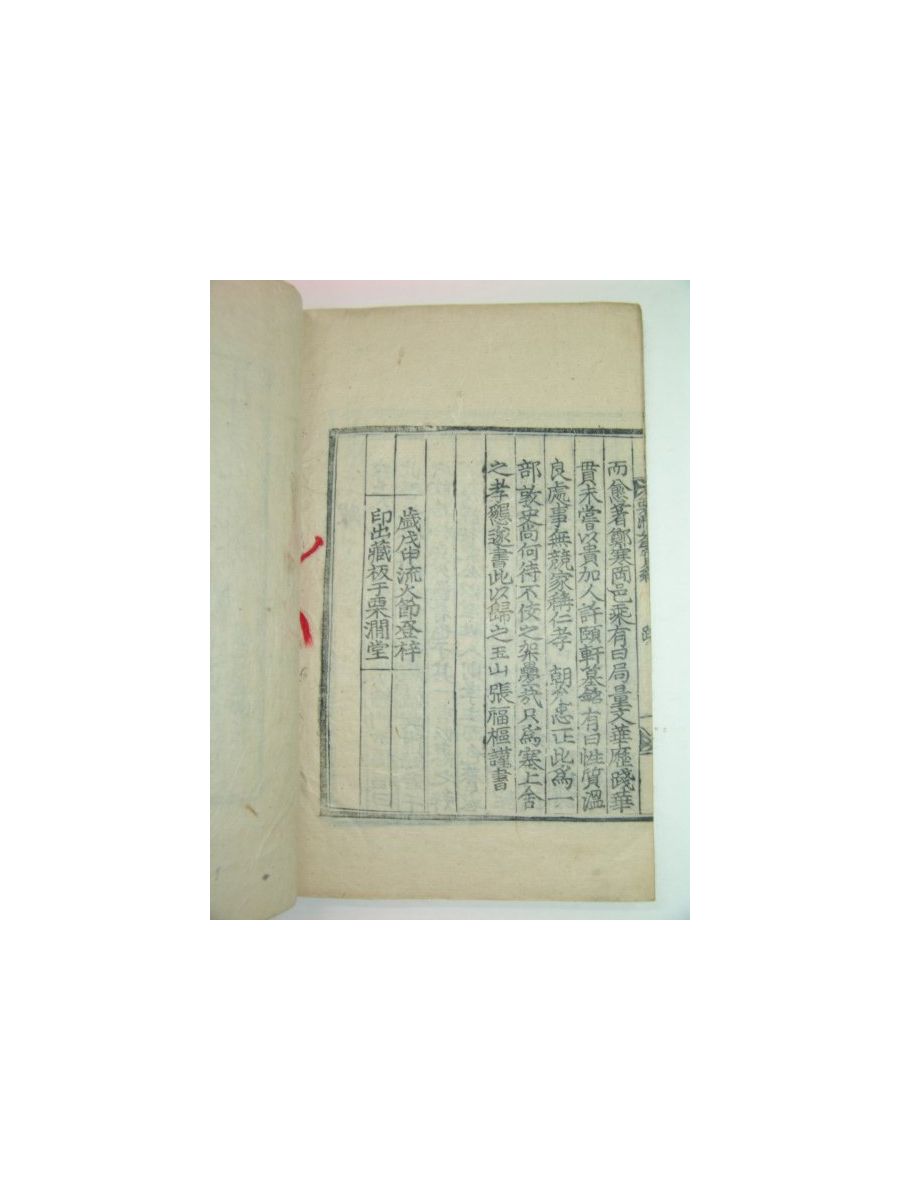 而愈著鄭寒岡邑乘有曰局量文華歷踐華
貫未嘗以貴加人許頤軒墓銘有曰性質溫
良處事無競家稱仁孝 朝尒忠正此爲一
部敦史尙何待不佞之架疊哉只爲塞上舍
之孝懇遂書此以歸之玉山張福樞謹書
歲戊申流火節登梓
印出藏板于栗澗堂
跋
一